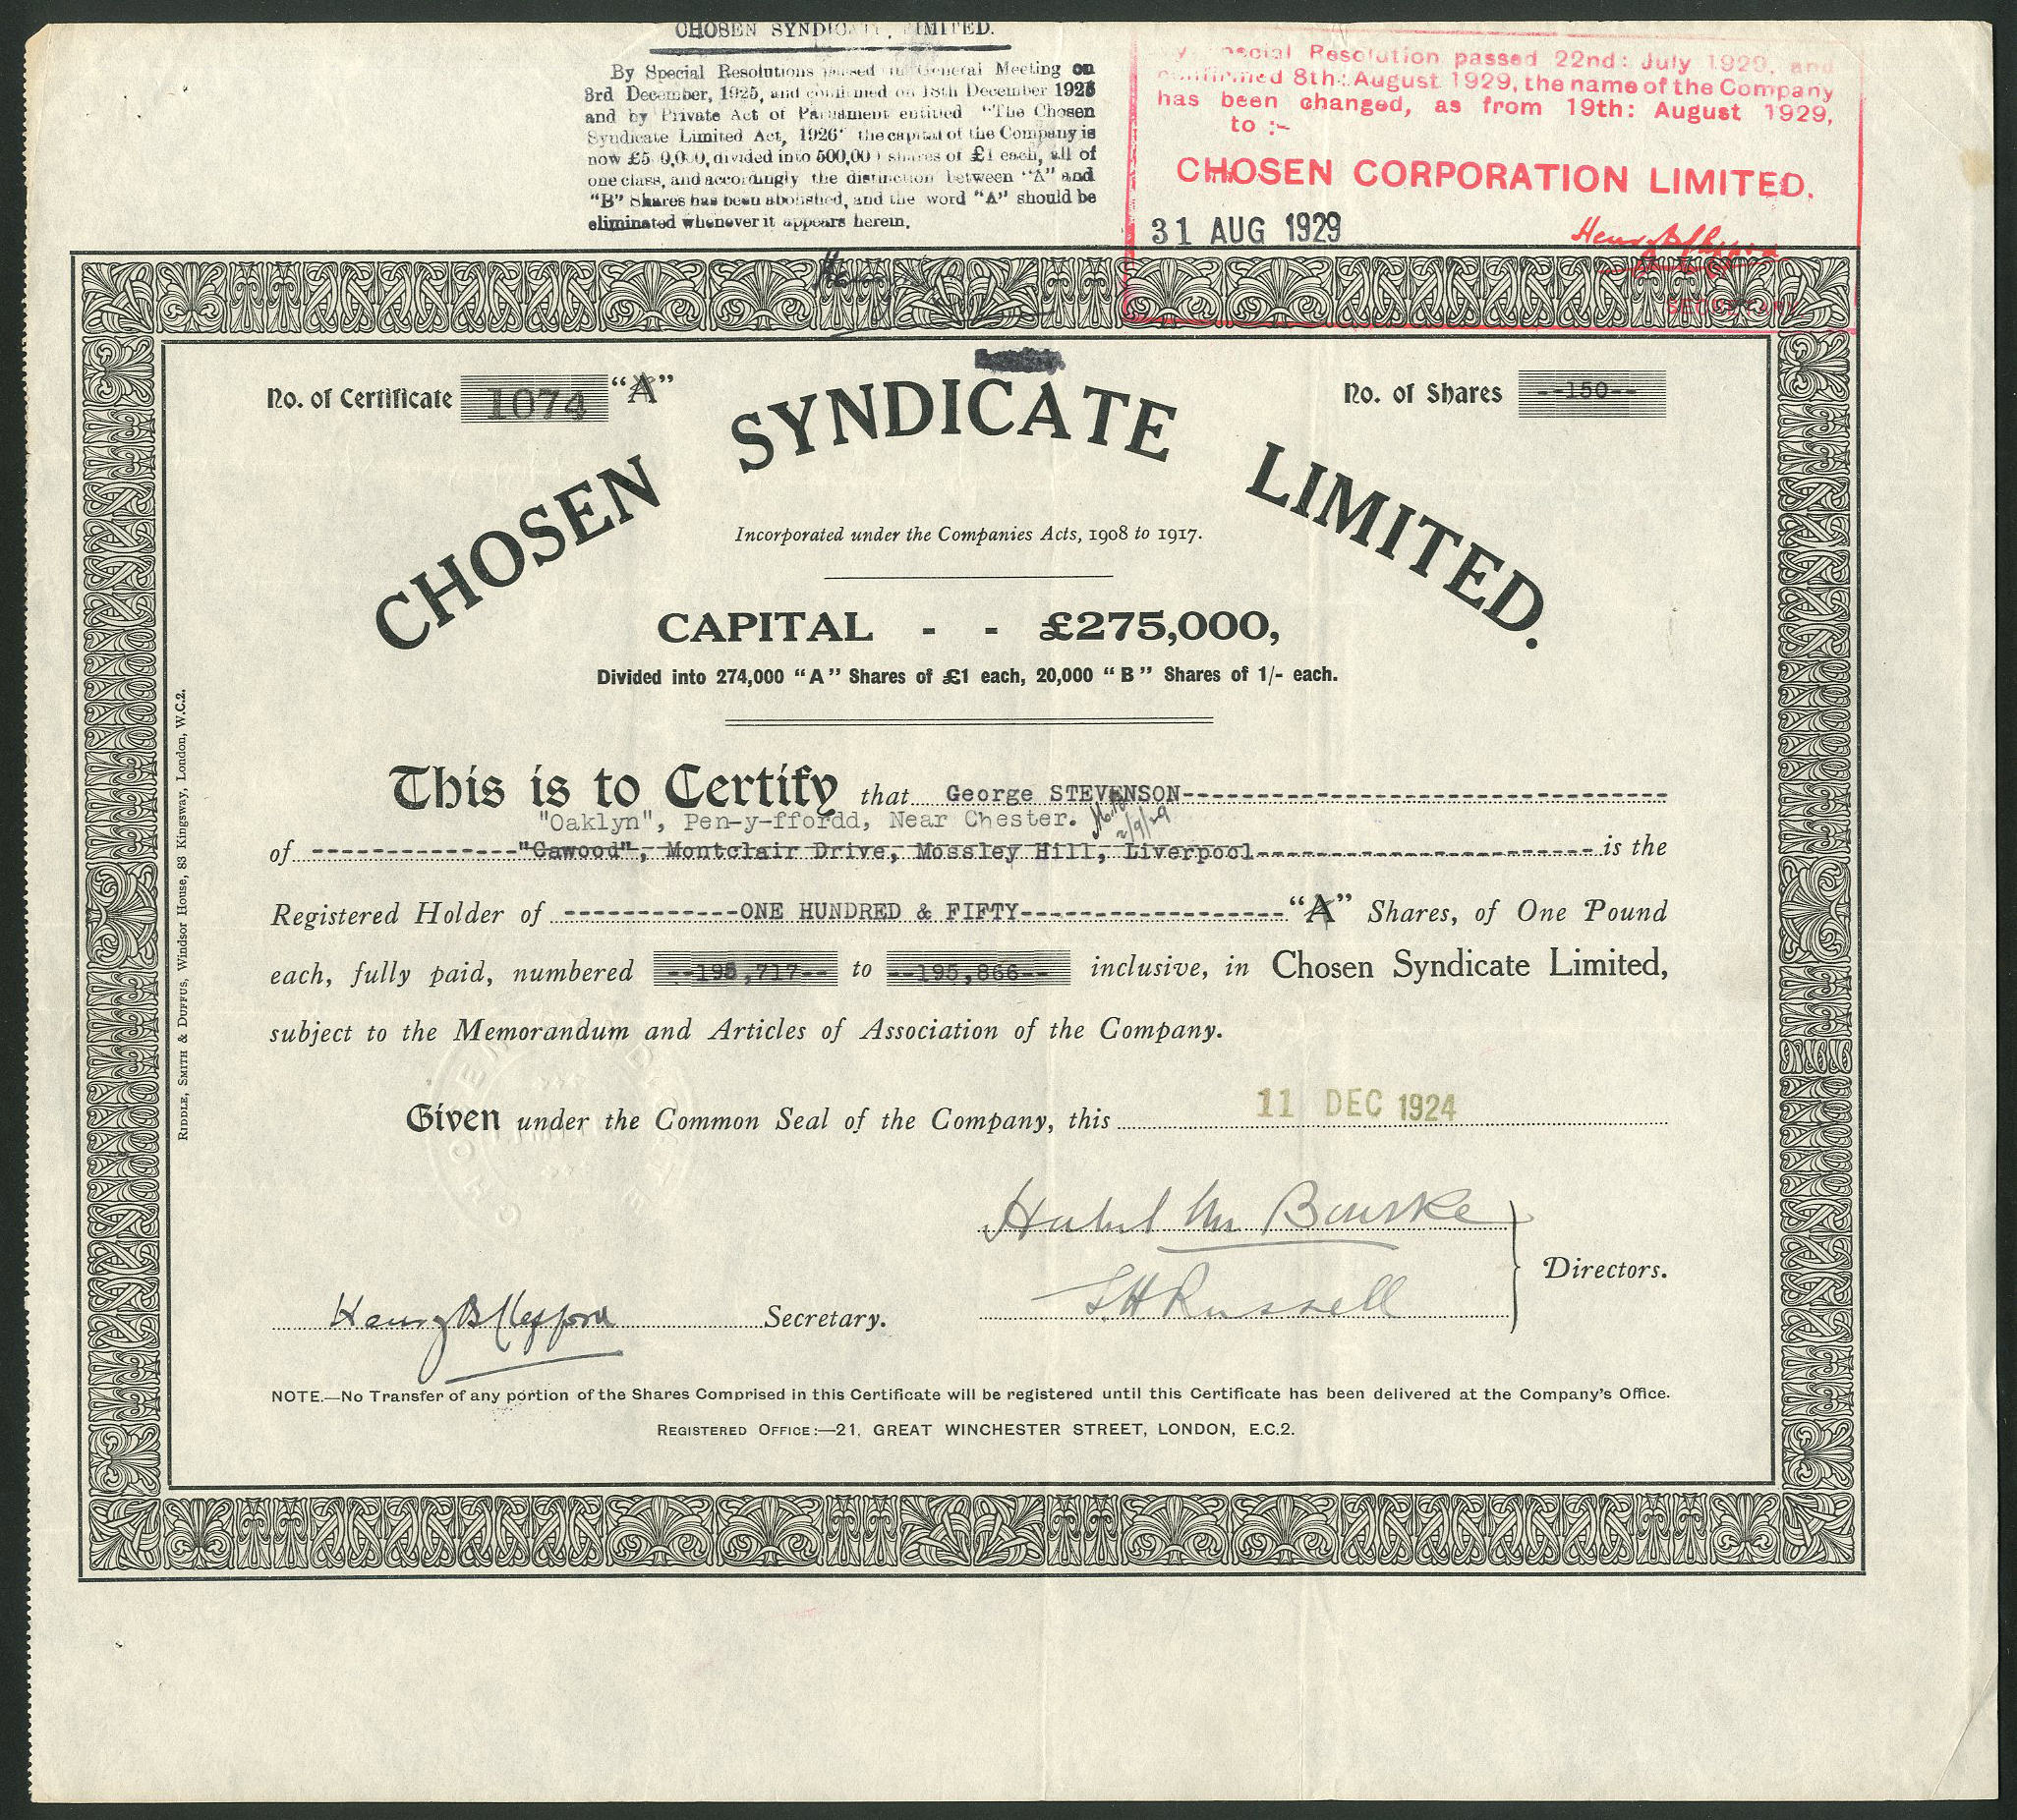 CHOSEN SYNDICATE, LIMITED.
By Special Resolutions passed in General Meeting on
3rd December, 1925, and confirmed on 18th December 1925
and by Private Act of Parliament entitled "The Chosen
Syndicate Limited Act, 1926" the capital of the Company is
now £500,000, divided into 500,000 shares of £1 each, all of
one class, and accordingly the distinction between "A" and
"B" Shares has been abolished, and the word "A" should be
eliminated whenever it appears herein.
By Special Resolution passed 22nd: July 1929, and
confirmed 8th: August 1929, the name of the Company
has been changed, as from 19th: August 1929,
to :-
CHOSEN CORPORATION LIMITED.
31 AUG 1929
SECRETARY
No. of Certificate 1074 "A"
No. of Shares --150--
CHOSEN SYNDICATE LIMITED.
Incorporated under the Companies Acts, 1908 to 1917.
CAPITAL - - £275,000,
Divided into 274,000 "A" Shares of £1 each, 20,000 "B" Shares of 1/- each.
This is to Certify that George STEVENSON
"Oaklyn", Pen-y-ffordd, Near Chester. 2/9/29
of "Cawood", Montclair Drive, Mossley Hill, Liverpool is the
Registered Holder of ONE HUNDRED & FIFTY "A" Shares, of One Pound
each, fully paid, numbered --195,717-- to --195,866-- inclusive, in Chosen Syndicate Limited,
subject to the Memorandum and Articles of Association of the Company.
Given under the Common Seal of the Company, this 11 DEC 1924
Bourke
Directors.
Henry B Secretary.
Russell
NOTE.—No Transfer of any portion of the Shares Comprised in this Certificate will be registered until this Certificate has been delivered at the Company's Office.
REGISTERED OFFICE:—21, GREAT WINCHESTER STREET, LONDON, E.C.2.
RIDDLE, SMITH & DUFFUS, Windsor House, 83 Kingsway, London, W.C.2.